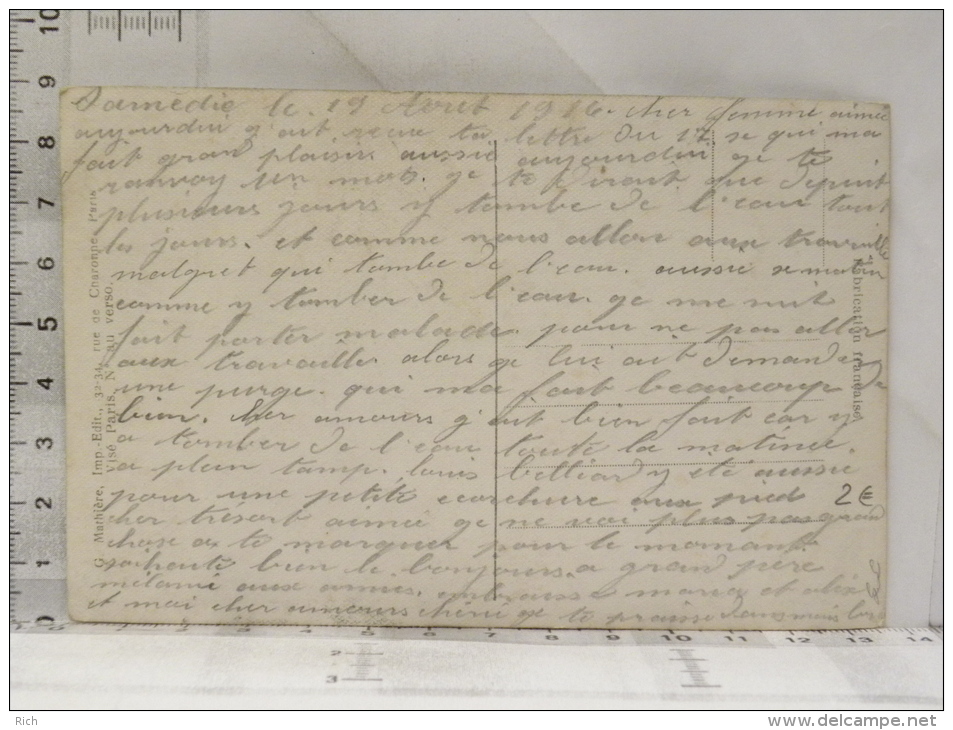 Samedie le. 19 Aout 1916. cher femme aimée
aujourdui g'ait reçue ta lettre du 17 se qui ma
fait grand plaisir. aussie aujourdui ge te
ranvoy un mot. ge te dirait que depuit
plusieurs jours y tombe de l'eau tout
les jours. et comme nous allon aux travaille
malgret qui tombe de l'eau. aussie se matin
comme y tomber de l'eau. ge me suit
fait porter malade. pour ne pas aller
aux travaille alors ge lui ait demander
une purge. qui ma fait beaucoup de
bien. cher amours g'ait bien fait car y
a tomber de l'eau toute la matinée.
a plein tamp. louis belliard y été aussie
pour une petite ecorchure aux pied
cher trésort aimée ge ne voi plus pas grand
chose a te marquer pour le momant.
soihaite bien le bonjours. a grand père
mélanie aux amies. embrasse maria et alix
et moi cher amours chérie ge te presse dans mais bras
2€
G. Mathière, Imp.-Edit., 32-34, rue de Charonne, Paris
Visé Paris, N° au verso.
Fabrication française
0 1 2 3 4 5 6 7 8 9 10
2 3 4 5 6 7 8 9 10 11 12 13 14
2
3
Rich
www.delcampe.net